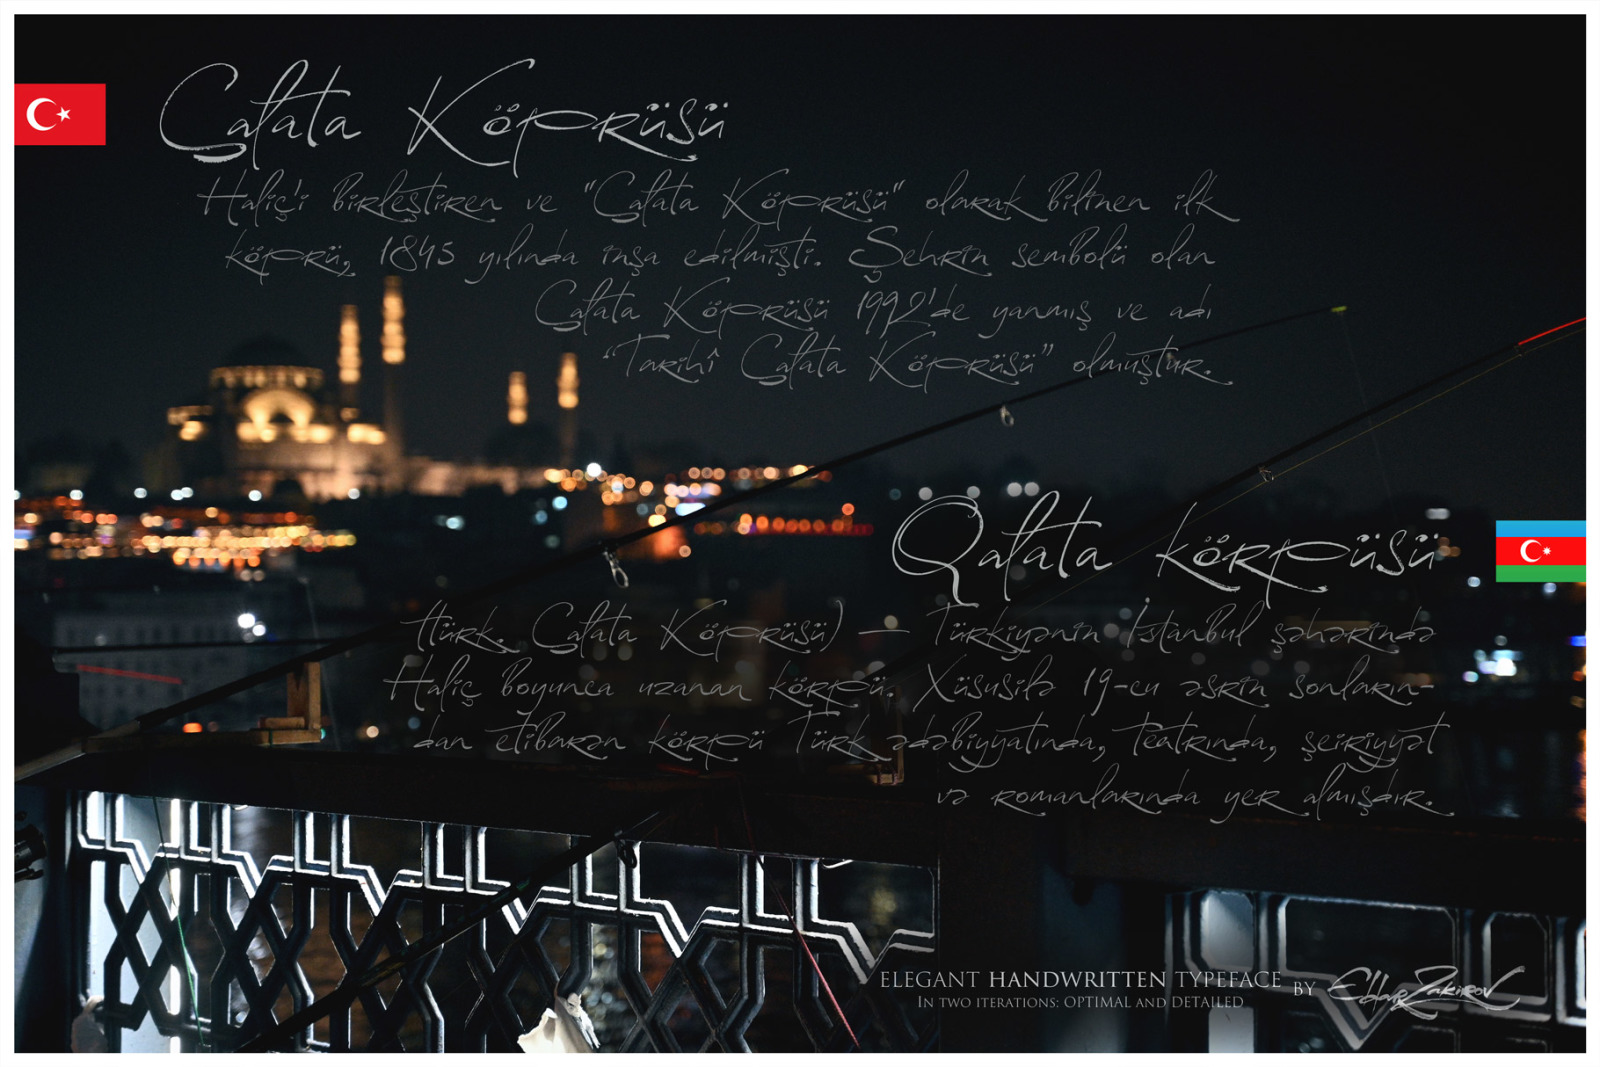 Galata Köprüsü
Haliç'i birleştiren ve "Galata Köprüsü" olarak bilinen ilk
köprü, 1845 yılında inşa edilmişti. Şehrin sembolü olan
Galata Köprüsü 1992'de yanmış ve adı
“Tarihî Galata Köprüsü” olmuştur.
Qalata körpüsü
(türk. Galata Köprüsü) — Türkiyənin İstanbul şəhərində
Haliç boyunca uzanan körpü. Xüsusilə 19-cu əsrin sonların-
dan etibarən körpü Türk ədəbiyyatında, teatrında, şeiriyyət
və romanlarında yer almışdır.
ELEGANT HANDWRITTEN TYPEFACE BY Eldar Zakirov
IN TWO ITERATIONS: OPTIMAL AND DETAILED